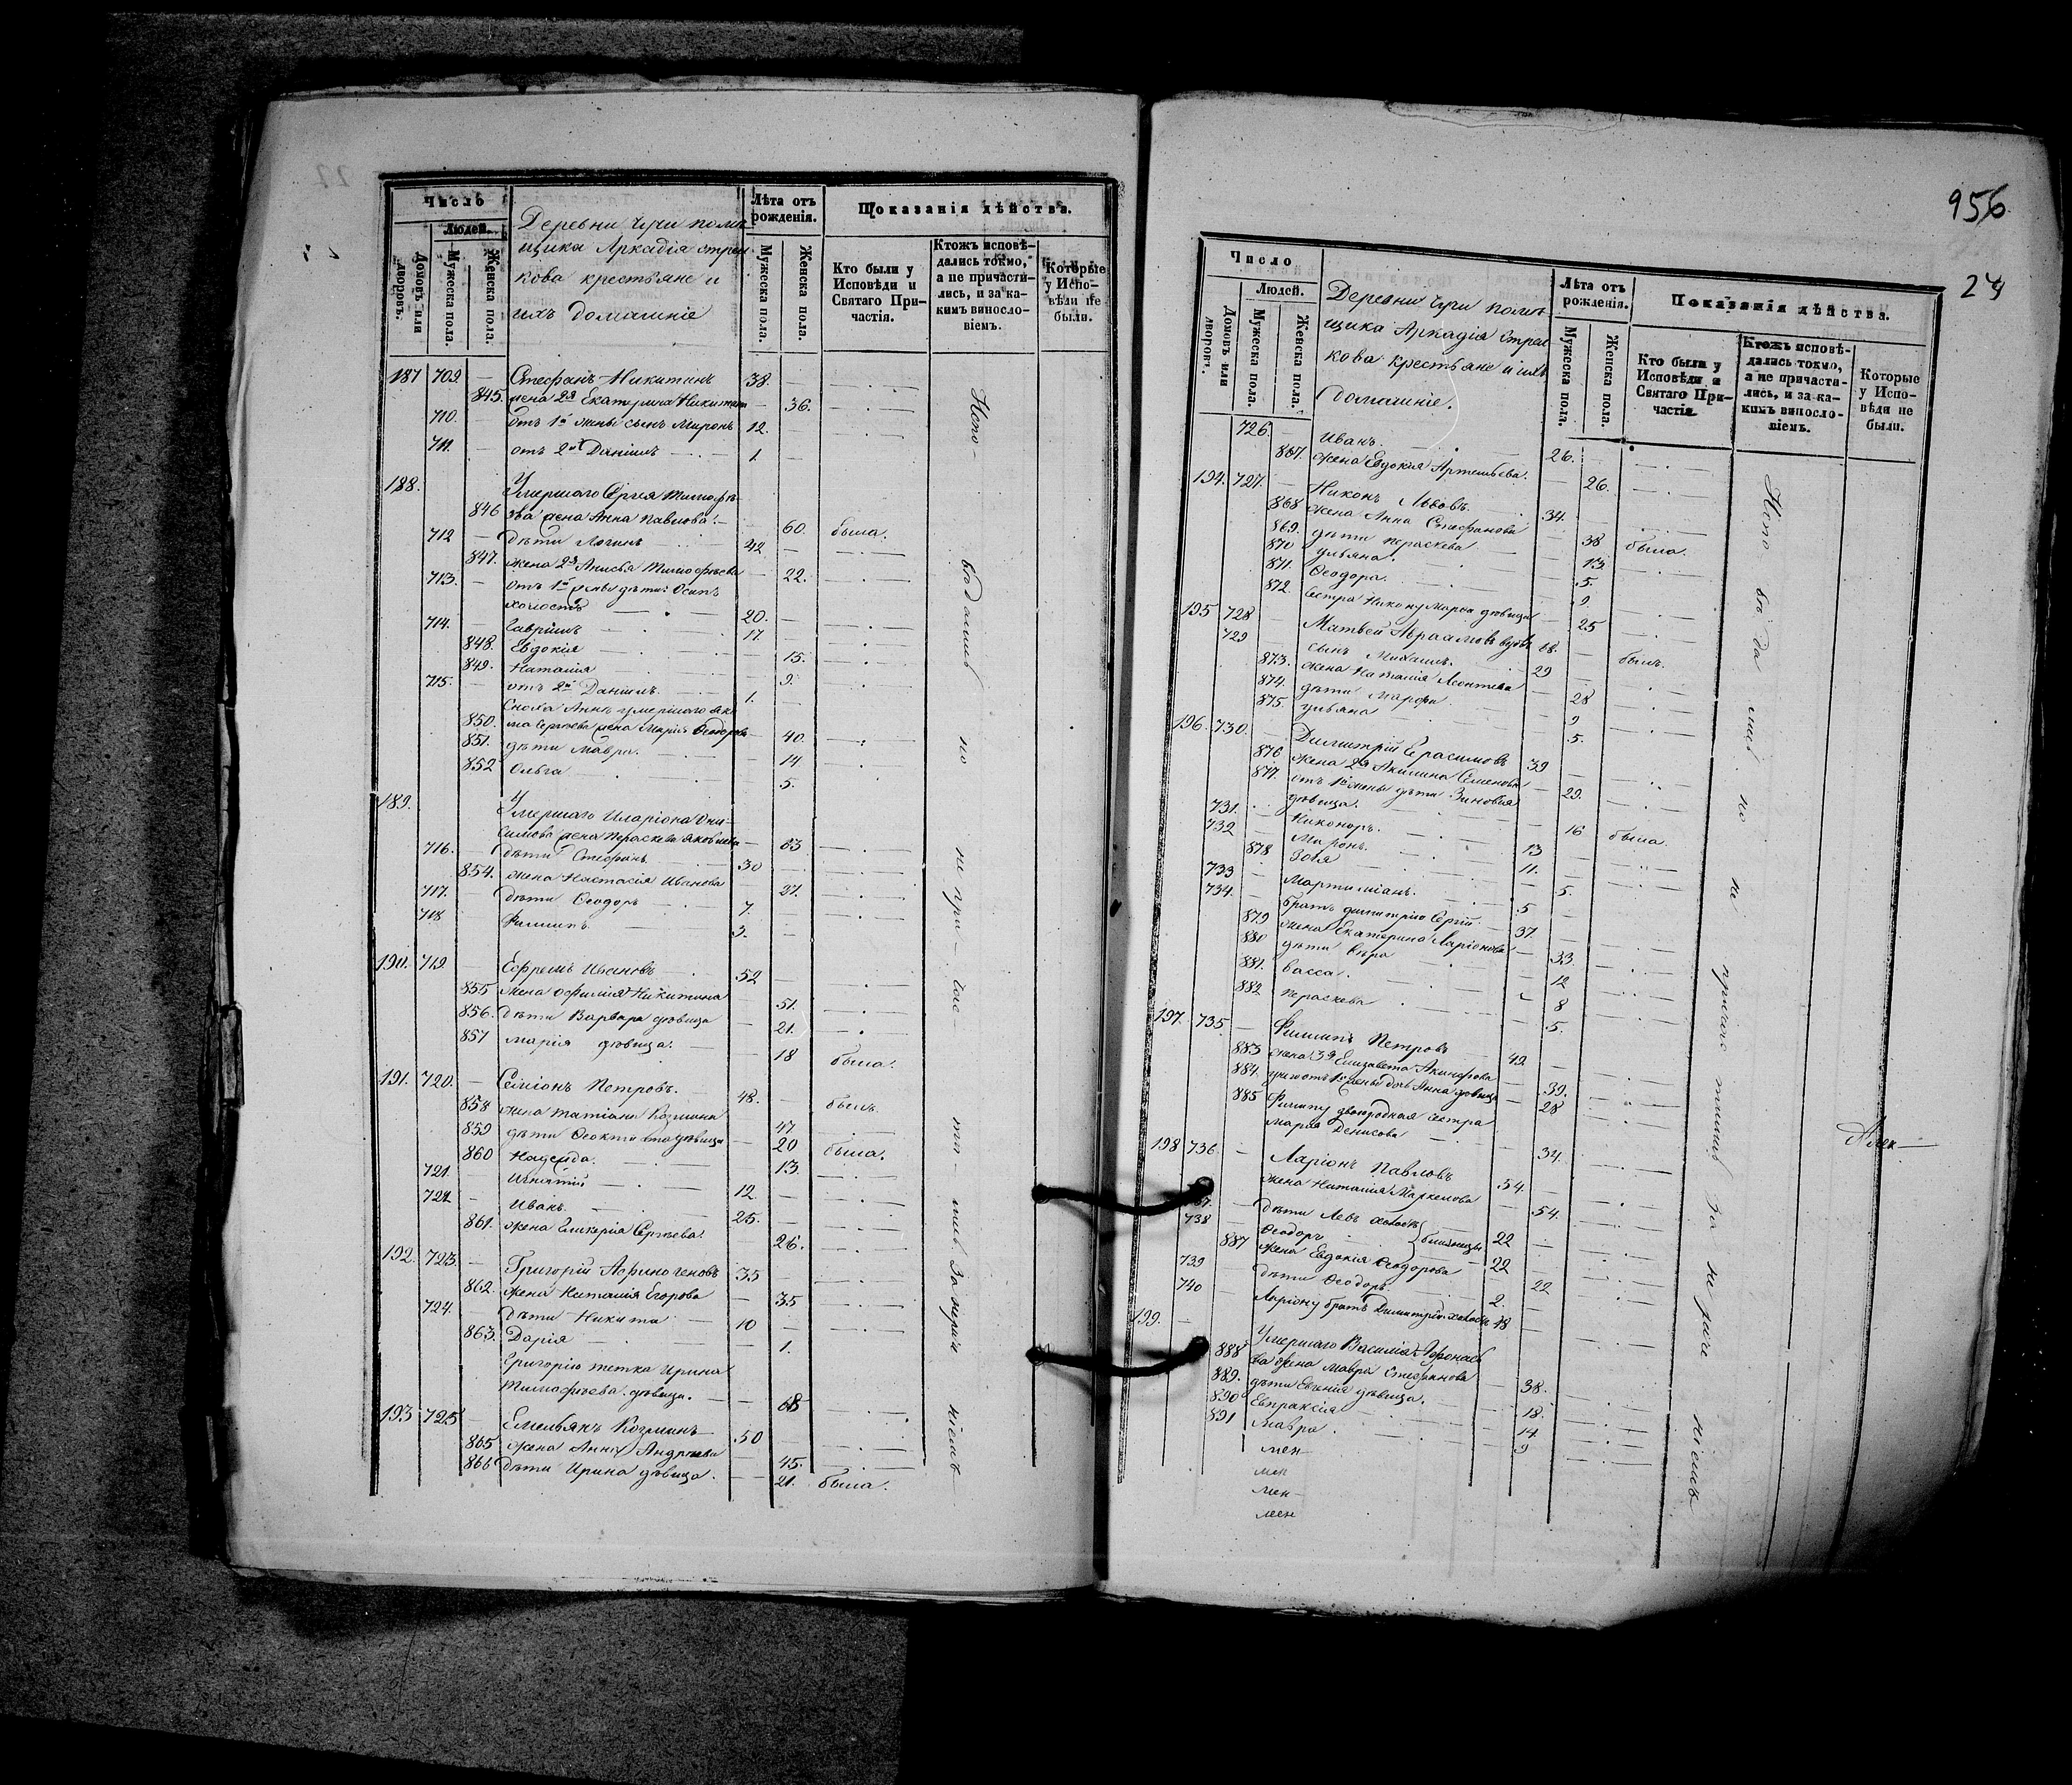 Число
Людей.
Домовъ или дворовъ.
Мужеска пола.
Женска пола.
Деревни Чури помѣ-
щика Аркадія Стрел-
кова крестьяне и
ихъ домашніе
Лѣта отъ рожденія.
Мужеска пола.
Женска пола.
Показанія дѣйства.
Кто были у Исповѣди и Святаго Причастія.
Ктожъ исповѣ-
дались токмо,
а не причасти-
лись, и за ка-
кимъ виносло-
віемъ.
Которые у Испо-
вѣди не были.
187 709. — Стефанъ Никитинъ 38. —
845. жена 2я Екатерина Никитина — 36.
710. — отъ 1й жены сынъ Миронъ 12.
711. — отъ 2й Даніилъ 1. —
188. Умершаго Сергея Тимофѣ-
846 ева жена Анна Павлова — 60. была.
712 — дѣти Логинъ 42 —
847. жена 2я Анисья Тимофѣева — 22.
713. — отъ 1й жены дѣти Осипъ
холостъ 20. —
714. — Гавріилъ 17. —
848. Евдокія — 15.
849. Наталія — 9.
715. — отъ 2й Даніилъ 1. —
Сноха Аннѣ умершаго
850. Сергѣева жена Марія Ѳеодорова — 40.
851. дѣти Мавра. — 14
852 Ольга — 5.
189. Умершаго Иларіона Они-
симова жена Параскева Яковлева — 63
716. — дѣти Стефанъ 30
854. жена Настасія Иванова — 27.
717. дѣти Ѳеодоръ 7. —
718 Филиппъ 3. —
190. 719. — Ефремъ Ивановъ 52 —
855 жена Офимія Никитина — 51.
856. дѣти Варвара дѣвица — 21.
857 Марія дѣвица. — 18 была.
191. 720. — Симіонъ Петровъ. 48. — былъ.
858 жена Татіана Козмина — 47
859 дѣти Ѳеоктиста дѣвица — 20 была.
860 Надежда. — 13.
721. Игнатій 12. —
722. — Иванъ. 25. —
861. жена Гликерія Сергѣева. — 26.
192. 723. — Григорій Афиногеновъ 35 —
862. жена Наталія Егорова — 35
724. — дѣти Никита 10 —
863. Дарія — 1.
Григорію тетка Ирина
Тимофѣева дѣвица. — 68
193 725 — Емельянъ Козминъ 50
865 жена Анна Андреева — 45.
866 дѣти Ирина дѣвица. — 21. была.
Испо-
вѣдались
но
не при-
час-
ти-
лись
за нерачи-
ніемъ
956
24
Число
Людей.
Домовъ или дворовъ.
Мужеска пола.
Женска пола.
Деревни Чури помѣ-
щика Аркадія Стрел-
кова крестьяне и ихъ
домашніе.
Лѣта отъ рожденія.
Мужеска пола.
Женска пола.
Показанія дѣйства.
Кто были у Исповѣди и Святаго Причастія.
Ктожъ исповѣ-
дались токмо,
а не причасти-
лись, и за ка-
кимъ виносло-
віемъ.
Которые у Испо-
вѣди не были.
726. — Иванъ. 26. —
867. жена Евдокія Артемьева. — 26.
194. 727. — Никонъ Львовъ 34. —
868 жена Анна Стефанова — 38 была.
869. дѣти Параскева — 13.
870 Ульяна. — 5.
871. Ѳеодора. — 2.
872. Сестра Никону Марѳа дѣвица — 25
195 728 — Матвей Абрамовъ вдовъ 68. — былъ.
729 сынъ Михаилъ. 29 —
873. жена Наталія Леонтьева — 28
874. дѣти Марѳа. — 9
875. Ульяна — 5.
196. 730. — Димитрій Герасимовъ 39 —
876 жена 2я Акилина Семенова — 29.
877. отъ 1й жены дѣти Зиновія
дѣвица. — 16 была.
731. — Никоноръ. 13 —
732 — Миронъ. 11. —
878 Зотя — 5.
733 — Мартиміанъ. 5 —
734. — братъ Димитрію Сергій 37. —
879 жена Екатерина Ларіонова — 33
880 дѣти Вѣра — 12
881. Васса. — 8
882 Параскева — 5.
197. 735. — Филиппъ Петровъ 42 —
883 жена 3я Елизавета Акинфова — 39.
884. отъ 1й жены дочь Анна дѣвица — 28
885 Филиппу двоюродная сестра
Марія Денисова — 34.
198 736 — Ларіонъ Павловъ 54. —
жена Наталія Маркелова — 54.
дѣти Левъ холостъ 22 —
738 Ѳеодоръ близнецы 22 —
887 жена Евдокія Ѳеодорова — 22
739 дѣти Ѳеодоръ 2. —
740 Ларіону братъ Димитрій холостъ 48 —
199. — Умершаго Василія Афонасье-
888 ва жена Мавра Стефанова — 38.
889. дѣти Евгенія дѣвица. — 18.
890 Евпраксія — 14
891 Мавра. — 9
Испо
вѣ
да
лись
но
не
причас
тились
за
не
раче
ніемъ